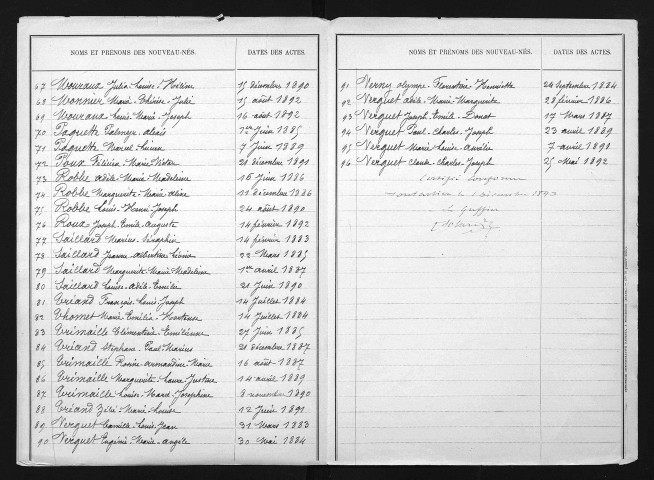 NOMS ET PRÉNOMS DES NOUVEAU-NÉS. DATES DES ACTES.
67 Louise 15 décembre 1890
68 Monnier Marie 15 août 1892
69 Marie Joseph 16 août 1892
70 Paquette 1er Juin 1885
71 Paquette Marcel 7 Juin 1889
72 Poux Marie 20 décembre 1891
73 Robbe Adèle Marie Madeleine 15 Juin 1886
74 Robbe Marguerite Marie 11 décembre 1886
75 Robbe Louis Henri Joseph 24 août 1890
76 Roux Joseph Emile Auguste 14 février 1892
77 Saillard Marius Séraphin 14 février 1883
78 Saillard Jeanne Albertine 22 Mars 1885
79 Saillard Marguerite Marie Madeleine 1er avril 1887
80 Saillard Louise Adèle Emilie 21 Juin 1890
81 Criand François Louis Joseph 14 Juillet 1884
82 Thomet Marie Emélie Hortense 14 Juillet 1884
83 Trimaille Clémentine Emilienne 27 Juin 1885
84 Criand Stéphane Paul Marius 21 décembre 1887
85 Trimaille Rosine Armandine Marie 16 août 1887
86 Trimaille Marguerite Laure Justine 14 avril 1889
87 Trimaille Louise Marie Joséphine 8 novembre 1890
88 Criand Zélie Marie Louise 12 Juin 1891
89 Verguet Camille Louis Jean 31 Mars 1883
90 Verguet Eugénie Marie Angèle 30 Mai 1884
NOMS ET PRÉNOMS DES NOUVEAU-NÉS. DATES DES ACTES.
91 Verny Olympe Florentine Henriette 24 Septembre 1884
92 Verguet Adèle Marie Marguerite 28 février 1886
93 Verguet Joseph Emile Donat 17 Mars 1887
94 Verguet Paul Charles Joseph 23 avril 1889
95 Verguet Marie Louise Amélie 7 avril 1891
96 Verguet Claude Charles Joseph 25 Mai 1892
Certifié conforme
Pontarlier le décembre 1893
Le Greffier